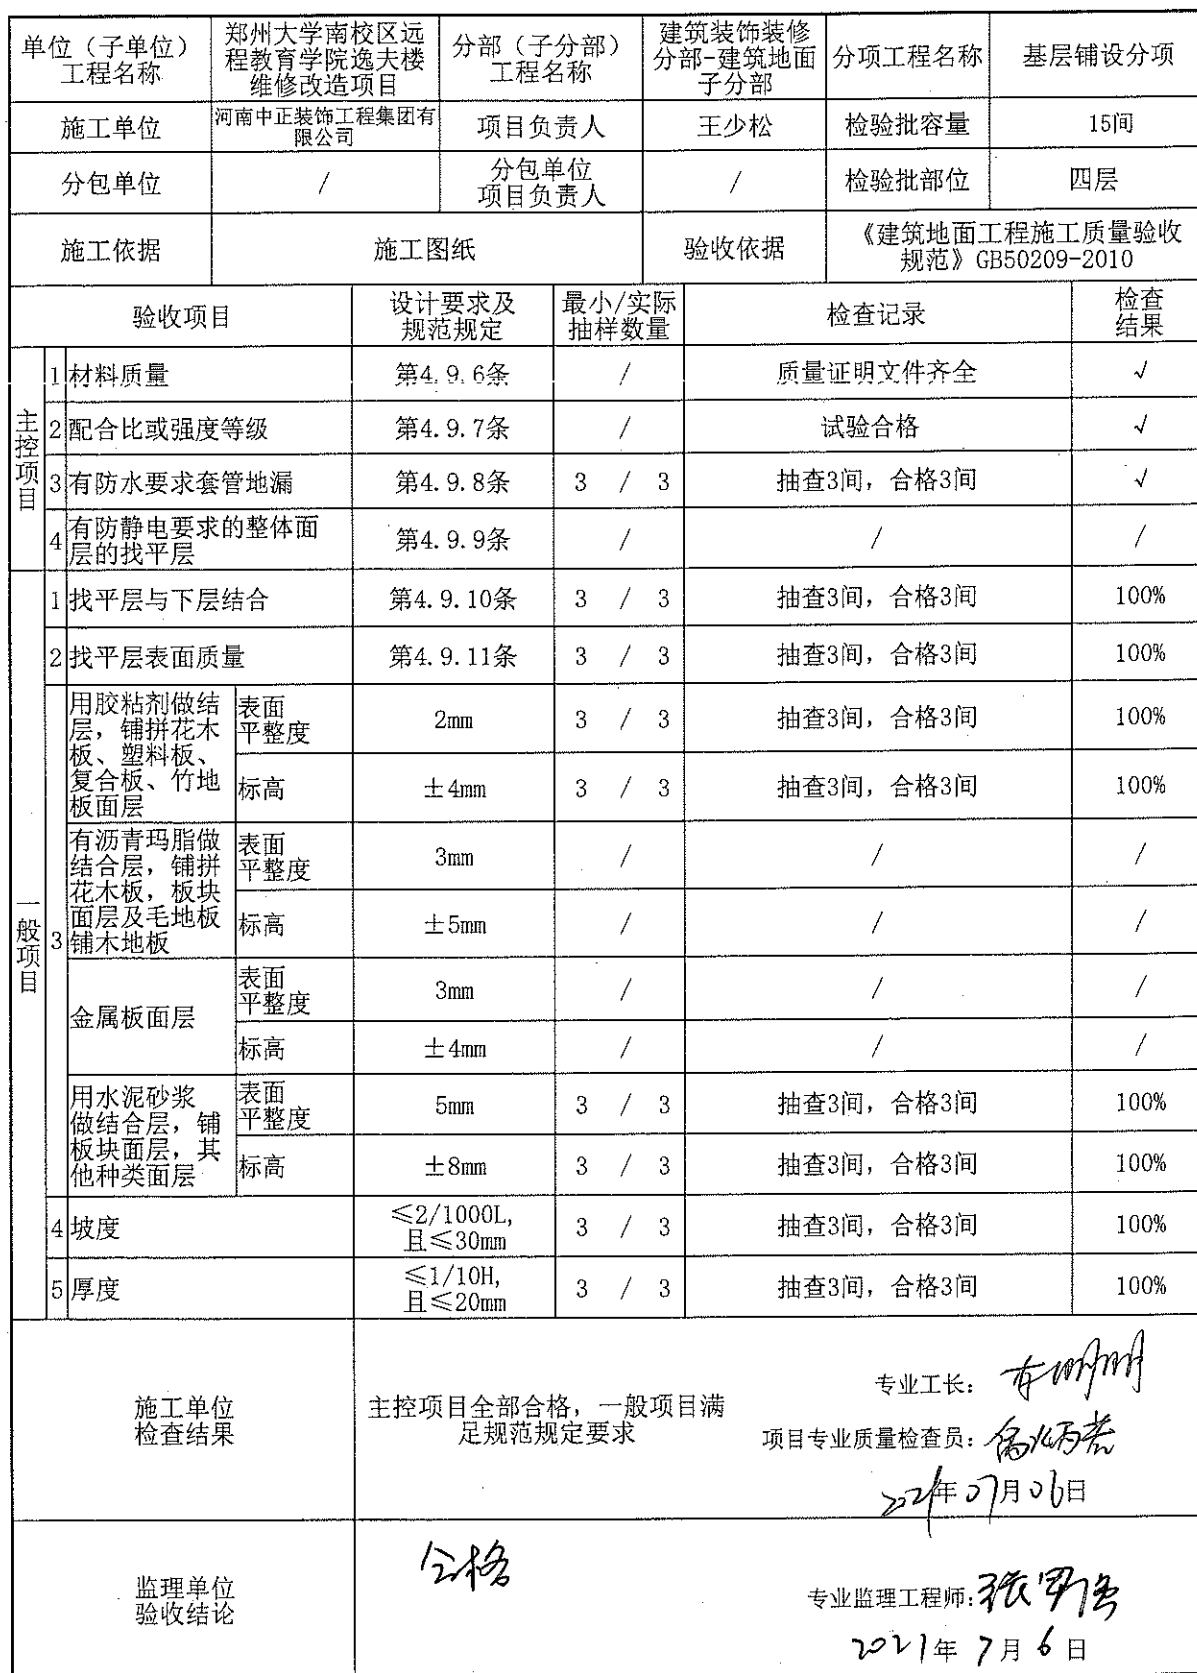 单位（子单位）
工程名称
郑州大学南校区远
程教育学院逸夫楼
维修改造项目
分部（子分部）
工程名称
建筑装饰装修
分部-建筑地面
子分部
分项工程名称
基层铺设分项
施工单位
河南中正装饰工程集团有
限公司
项目负责人
王少松
检验批容量
15间
分包单位
/
分包单位
项目负责人
/
检验批部位
四层
施工依据
施工图纸
验收依据
《建筑地面工程施工质量验收
规范》GB50209-2010
验收项目
设计要求及
规范规定
最小/实际
抽样数量
检查记录
检查
结果
主控项目
1 材料质量 第4.9.6条 / 质量证明文件齐全 √
2 配合比或强度等级 第4.9.7条 / 试验合格 √
3 有防水要求套管地漏 第4.9.8条 3 / 3 抽查3间，合格3间 √
4 有防静电要求的整体面
层的找平层
第4.9.9条 / / /
一般项目
1 找平层与下层结合 第4.9.10条 3 / 3 抽查3间，合格3间 100%
2 找平层表面质量 第4.9.11条 3 / 3 抽查3间，合格3间 100%
3
用胶粘剂做结
层，铺拼花木
板、塑料板、
复合板、竹地
板面层
表面
平整度
2mm 3 / 3 抽查3间，合格3间 100%
标高 ±4mm 3 / 3 抽查3间，合格3间 100%
有沥青玛脂做
结合层，铺拼
花木板，板块
面层及毛地板
铺木地板
表面
平整度
3mm / / /
标高 ±5mm / / /
金属板面层
表面
平整度
3mm / / /
标高 ±4mm / / /
用水泥砂浆
做结合层，铺
板块面层，其
他种类面层
表面
平整度
5mm 3 / 3 抽查3间，合格3间 100%
标高 ±8mm 3 / 3 抽查3间，合格3间 100%
4 坡度
≤2/1000L,
且≤30mm
3 / 3 抽查3间，合格3间 100%
5 厚度
≤1/10H,
且≤20mm
3 / 3 抽查3间，合格3间 100%
施工单位
检查结果
主控项目全部合格，一般项目满
足规范规定要求
专业工长：
项目专业质量检查员：
2021年07月06日
监理单位
验收结论
合格
专业监理工程师：
2021年7月6日